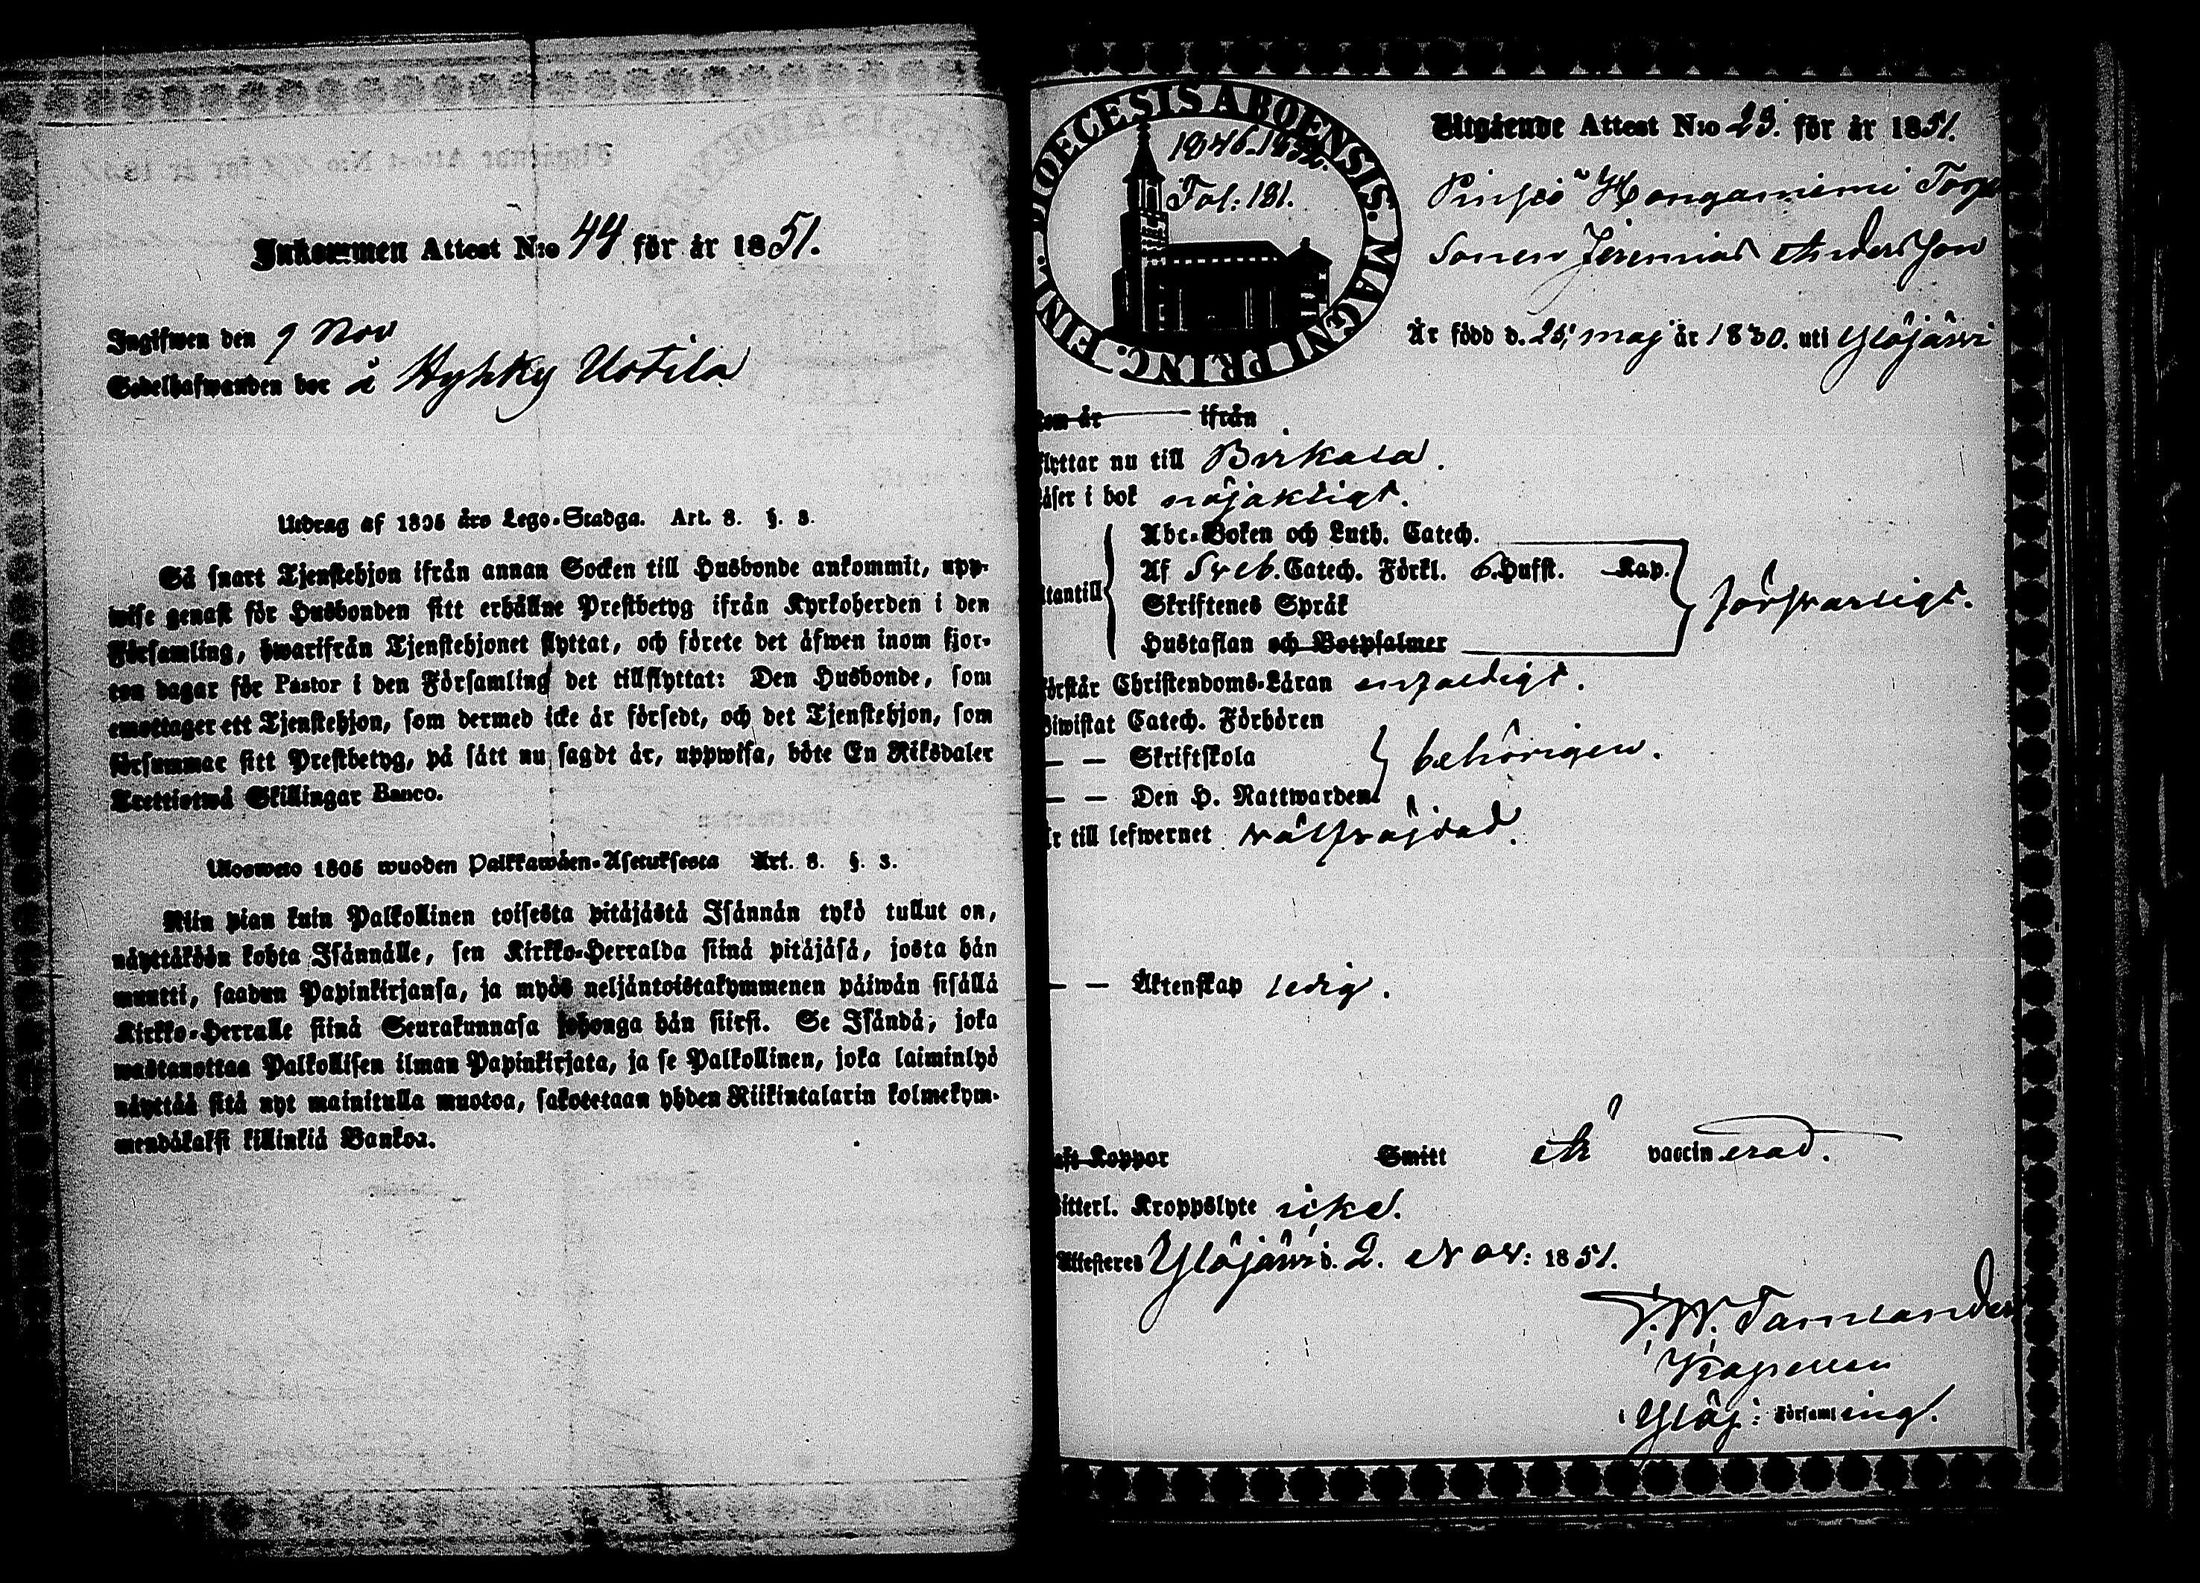 Inkommen Attest N:o 44 för år 1851.
Ingifwen den 9 Nov
Sedelhafwanden bor å Hyhky Uotila
Utdrag af 1805 års Lego-Stadga. Art. 8. §. 3.
Så snart Tjenstehjon ifrån annan Socken till Husbonde ankommit, upp-
wise genast för Husbonden sitt erhållne Prestbetyg ifrån Kyrkoherden i den
Församling, hwarifrån Tjenstehjonet flyttat, och förete det äfwen inom fjor-
ton dagar för Pastor i den Församling det tillflyttat: Den Husbonde, som
emottager ett Tjenstehjon, som dermed icke är försedt, och det Tjenstehjon, som
försummar sitt Prestbetyg, på sätt nu sagdt är, uppwisa, böte En Riksdaler
Trettiotwå Skillingar Banco.
Ulosweto 1805 wuoden Palkkawäen-Asetuksesta Art. 8. §. 3.
Niin pian kuin Palkollinen toisesta pitäjästä Isännän tykö tullut on,
näyttäköön kohta Isännälle, sen Kirkko-Herralda siinä pitäjäsä, josta hän
muutti, saadun Papinkirjansa, ja myös neljäntoistakymmenen päiwän sisällä
Kirkko-Herralle siinä Seurakunnasa johonga hän siirsi. Se Isändä, joka
wastanottaa Palkollisen ilman Papinkirjata, ja se Palkollinen, joka laiminlyö
näyttää sitä nyt mainitulla muotoa, sakotetaan yhden Riikintalarin kolmekym-
mendäkaksi killinkiä Bankoa.
DIOECESIS ABOENSIS. MAGNI PRINC. FINL.
1846-1852.
Fol: 181.
Utgående Attest N:o 23. för år 1851.
Pinsiö Hongamiemi Torp
Sonen Jeremias Andersson
Är född d. 25 maj år 1830. uti Ylöjärvi
kom år ifrån
flyttar nu till Birkala.
läser i bok nöjaktigt.
Abc-Boken och Luth. Catech.
utantill Af Sveb. Catech. Förkl. 6. Hufst. Kap. försvarligt.
Skriftenes Språk
Hustaflan och Botpsalmer
förstår Christendoms-Läran enfaldigt.
Biwistat Catech. Förhören
— — Skriftskola behörigen.
— — Den H. Nattwarden
är till lefwernet välfräjdad.
— — Äktenskap ledig.
haft Koppor Smitt är vaccinerad.
Witterl. Kroppslyte icke.
Attesteres Ylöjärvi d. 2. Nov: 1851.
F. W. Tamlander
Kapellan
i Ylöj: Församling.